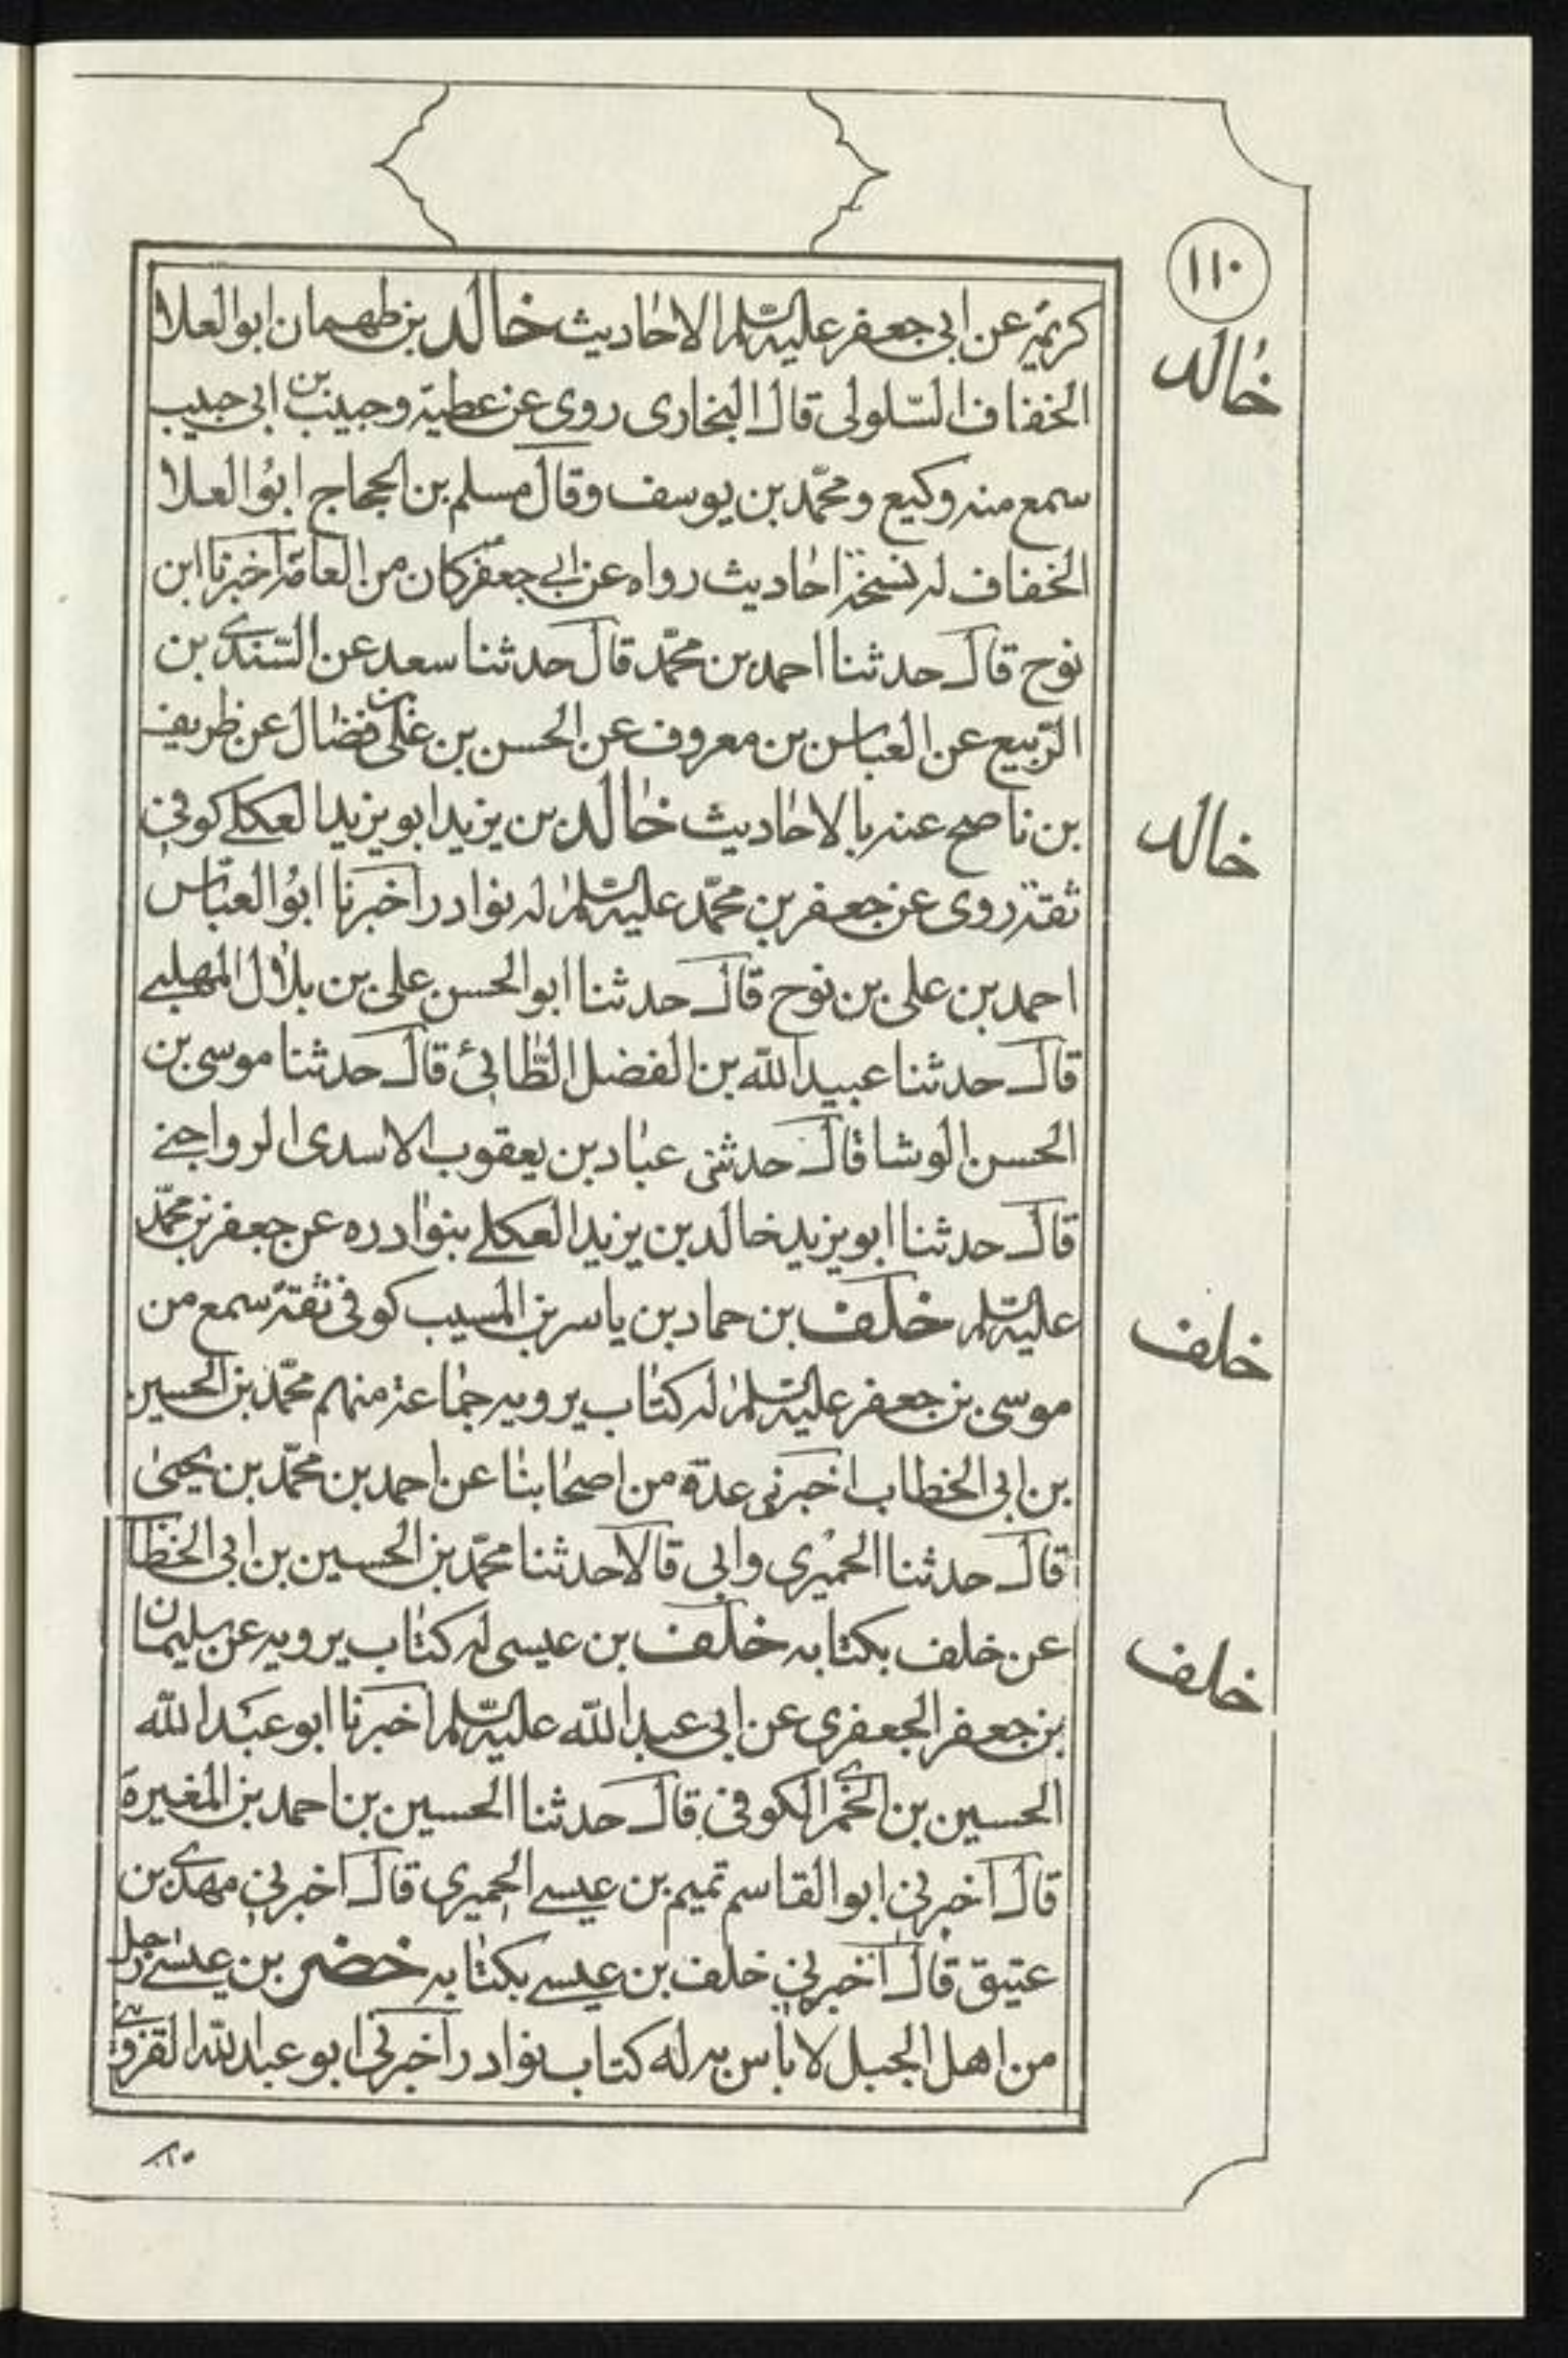 ١١٠
كريمة عن ابى جعفر عليه السلم الاحاديث خالد بن طهمان ابو العلا
خالد
الخفاف السلولى قال البخارى روى عن عطية وحبيب بن ابى حبيب
سمع منه وكيع ومحمد بن يوسف وقال مسلم بن الحجاج ابو العلا
الخفاف له نسخة احاديث رواه عن ابى جعفر كان من العامة اخبرنا ابن
نوح قال حدثنا احمد بن محمد قال حدثنا سعد عن السندى بن
الربيع عن العباس بن معروف عن الحسن بن على بن فضال عن ظريف
بن ناصح عنه بالاحاديث خالد بن يزيد ابو يزيد العكلى كوفى
خالد
ثقة روى عن جعفر بن محمد عليه السلم له نوادر اخبرنا ابو العباس
احمد بن على بن نوح قال حدثنا ابو الحسن على بن بلال المهلبى
قال حدثنا عبيد الله بن الفضل الطائى قال حدثنا موسى بن
الحسن الوشا قال حدثنى عباد بن يعقوب الاسدى الرواجنى
قال حدثنا ابو يزيد خالد بن يزيد العكلى بنوادره عن جعفر بن محمد
عليه السلم خلف بن حماد بن ياسر بن المسيب كوفى ثقة سمع من
خلف
موسى بن جعفر عليه السلم له كتاب يرويه جماعة منهم محمد بن الحسين
بن ابى الخطاب اخبرنى عدة من اصحابنا عن احمد بن محمد بن يحيى
قال حدثنا الحميرى وابى قالا حدثنا محمد بن الحسين بن ابى الخطا
عن خلف بكتابه خلف بن عيسى له كتاب يرويه عن سليمان
خلف
بن جعفر الجعفرى عن ابى عبد الله عليه السلم اخبرنا ابو عبد الله
الحسين بن الخمرى الكوفى قال حدثنا الحسين بن احمد بن المغيرة
قال اخبرنى ابو القاسم تميم بن عيسى الحميرى قال اخبرنى مهدى بن
عتيق قال اخبرنى خلف بن عيسى بكتابه خضر بن عيسى رجل
من اهل الجبل لا باس به له كتاب نوادر اخبرنى ابو عبد الله القزوينى